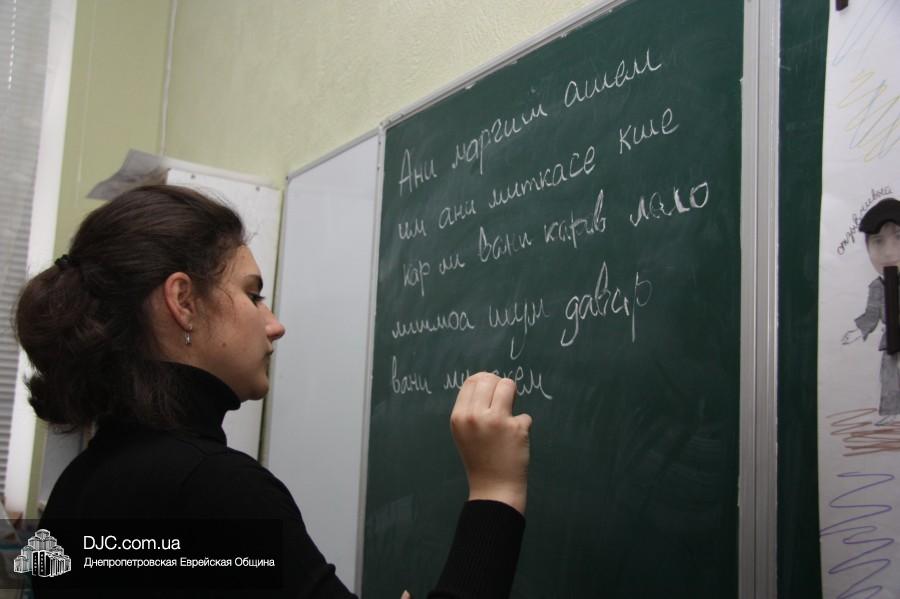 Ани маргиш ашем
им ани миткасе кше
кар ли вани карав лало
мишмоа шум давар
вани
отзывчивый
DJC.com.ua
Днепропетровская Еврейская Община